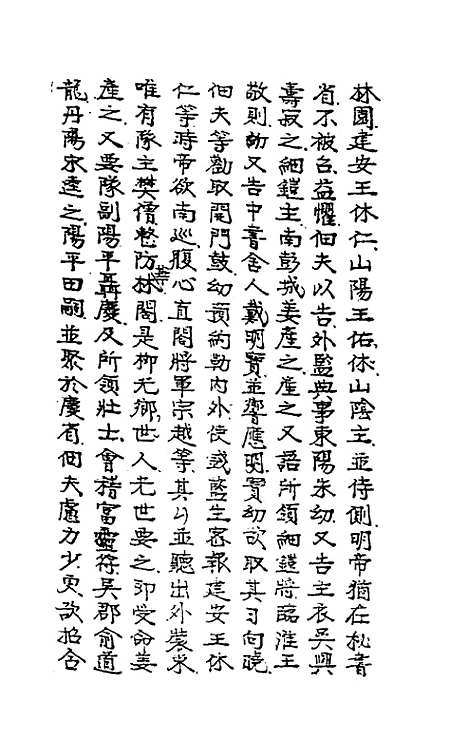 林園建安王休仁山陽王佑休山陰主並侍側明帝猶在秘書
省不被召益懼佃夫以告外監典事東陽朱幼又告主衣吳興
壽寂之細鎧主南彭城姜產之產之又語所領細鎧將臨淮王
敬則幼又告中書舍人戴明寶並響應明寶幼欲取其日向曉
佃夫等勸取開門鼓幼預約勒內外使錢藍生密報建安王休
仁等時帝欲南巡腹心直閣將軍宗越等其夕並聽出外裝束
唯有隊主樊僧整防華林閣是柳光世鄉人光世要之即受命姜
產之又要隊副陽平聶慶及所領壯士會稽富靈符吳郡俞道
龍丹陽宋逵之陽平田嗣並聚於慶省佃夫慮力少更欲招合